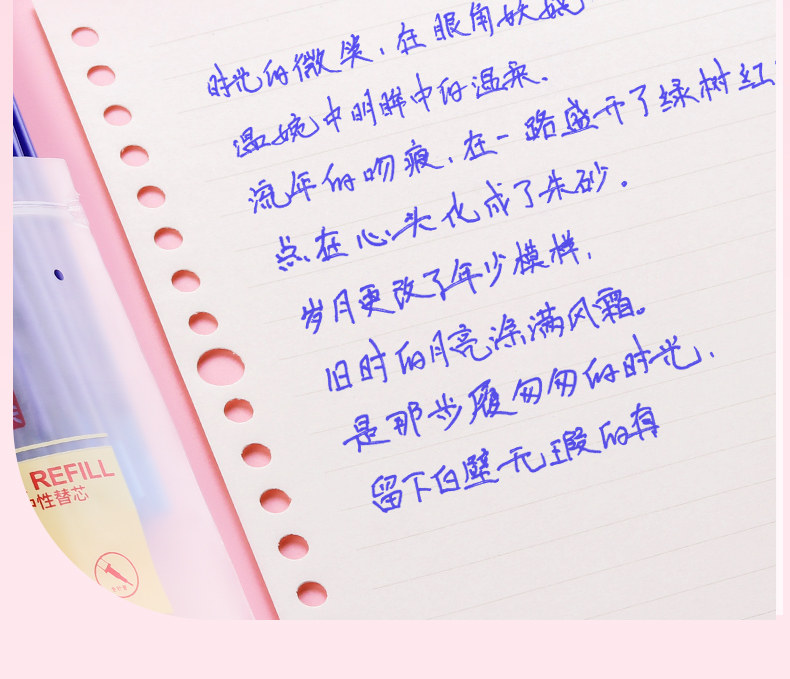 时光的微笑，在眼角妖娆
温婉中明眸中的温柔、
流年的吻痕，在一路盛开了绿树红
点在心头化成了朱砂。
岁月更改了年少模样，
旧时的月亮涂满风霜。
是那步履匆匆的时光，
留下白壁无瑕的存
REFILL
中性替芯